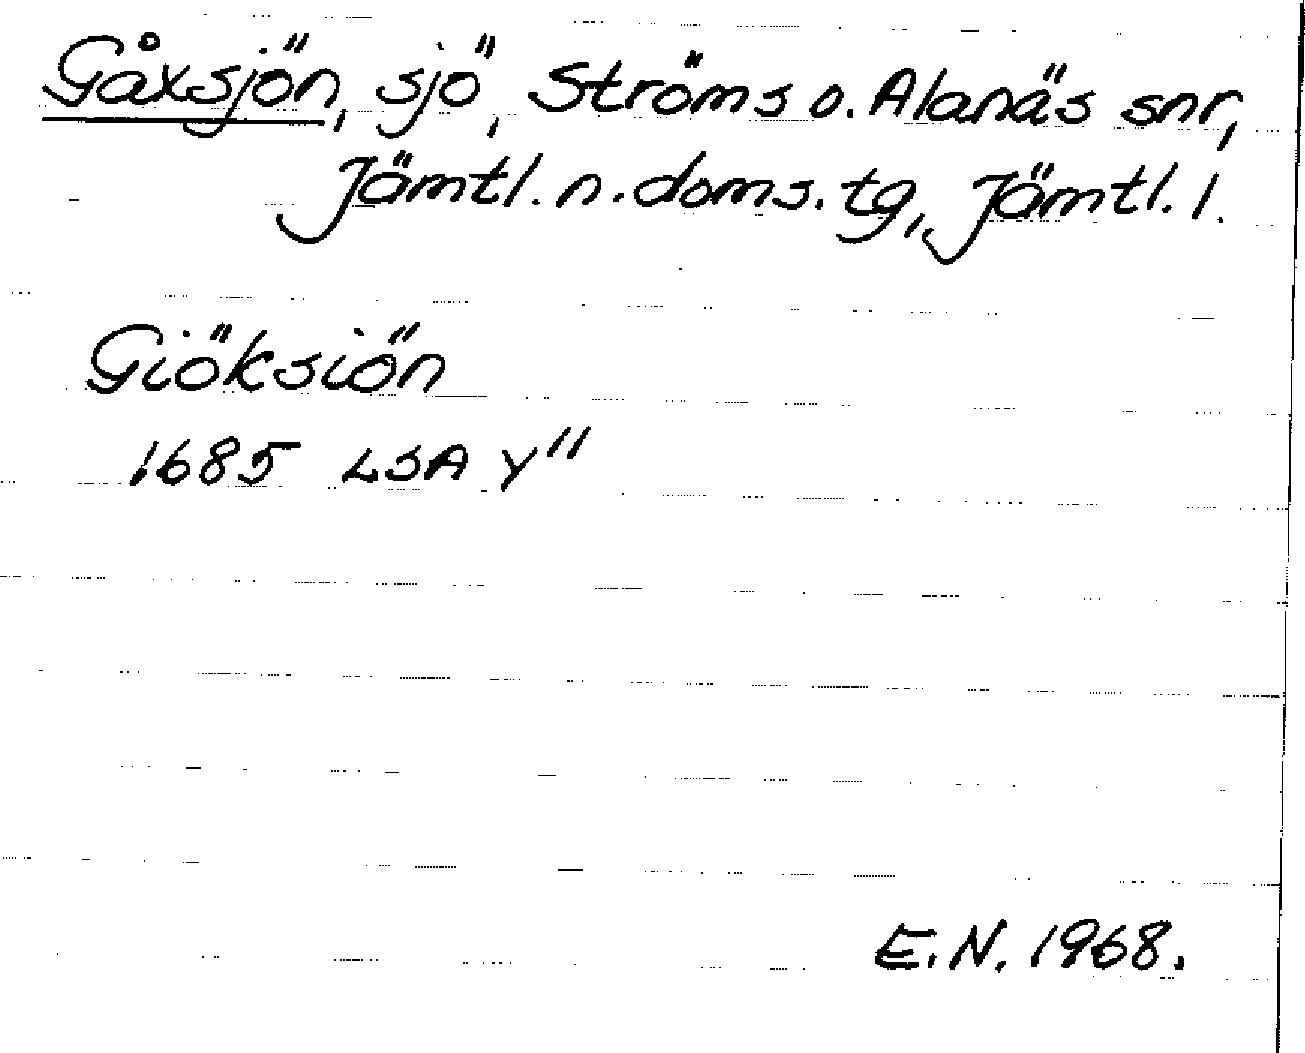 Gåxsjön, sjö, Ströms o. Alanäs snr,
Jämtl. n. doms. tg, Jämtl. l.
Giöksiön
1685 LSA Y"
E.N. 1968.